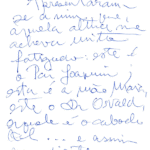 Apresentaram
se a mim, que,
aquela altura me
achava muito
fatigado: este é
o Pai Joaquim;
esta é a mãe Maria,
este o Dr. Osvaldo,
aquele é o caboclo
... e assim